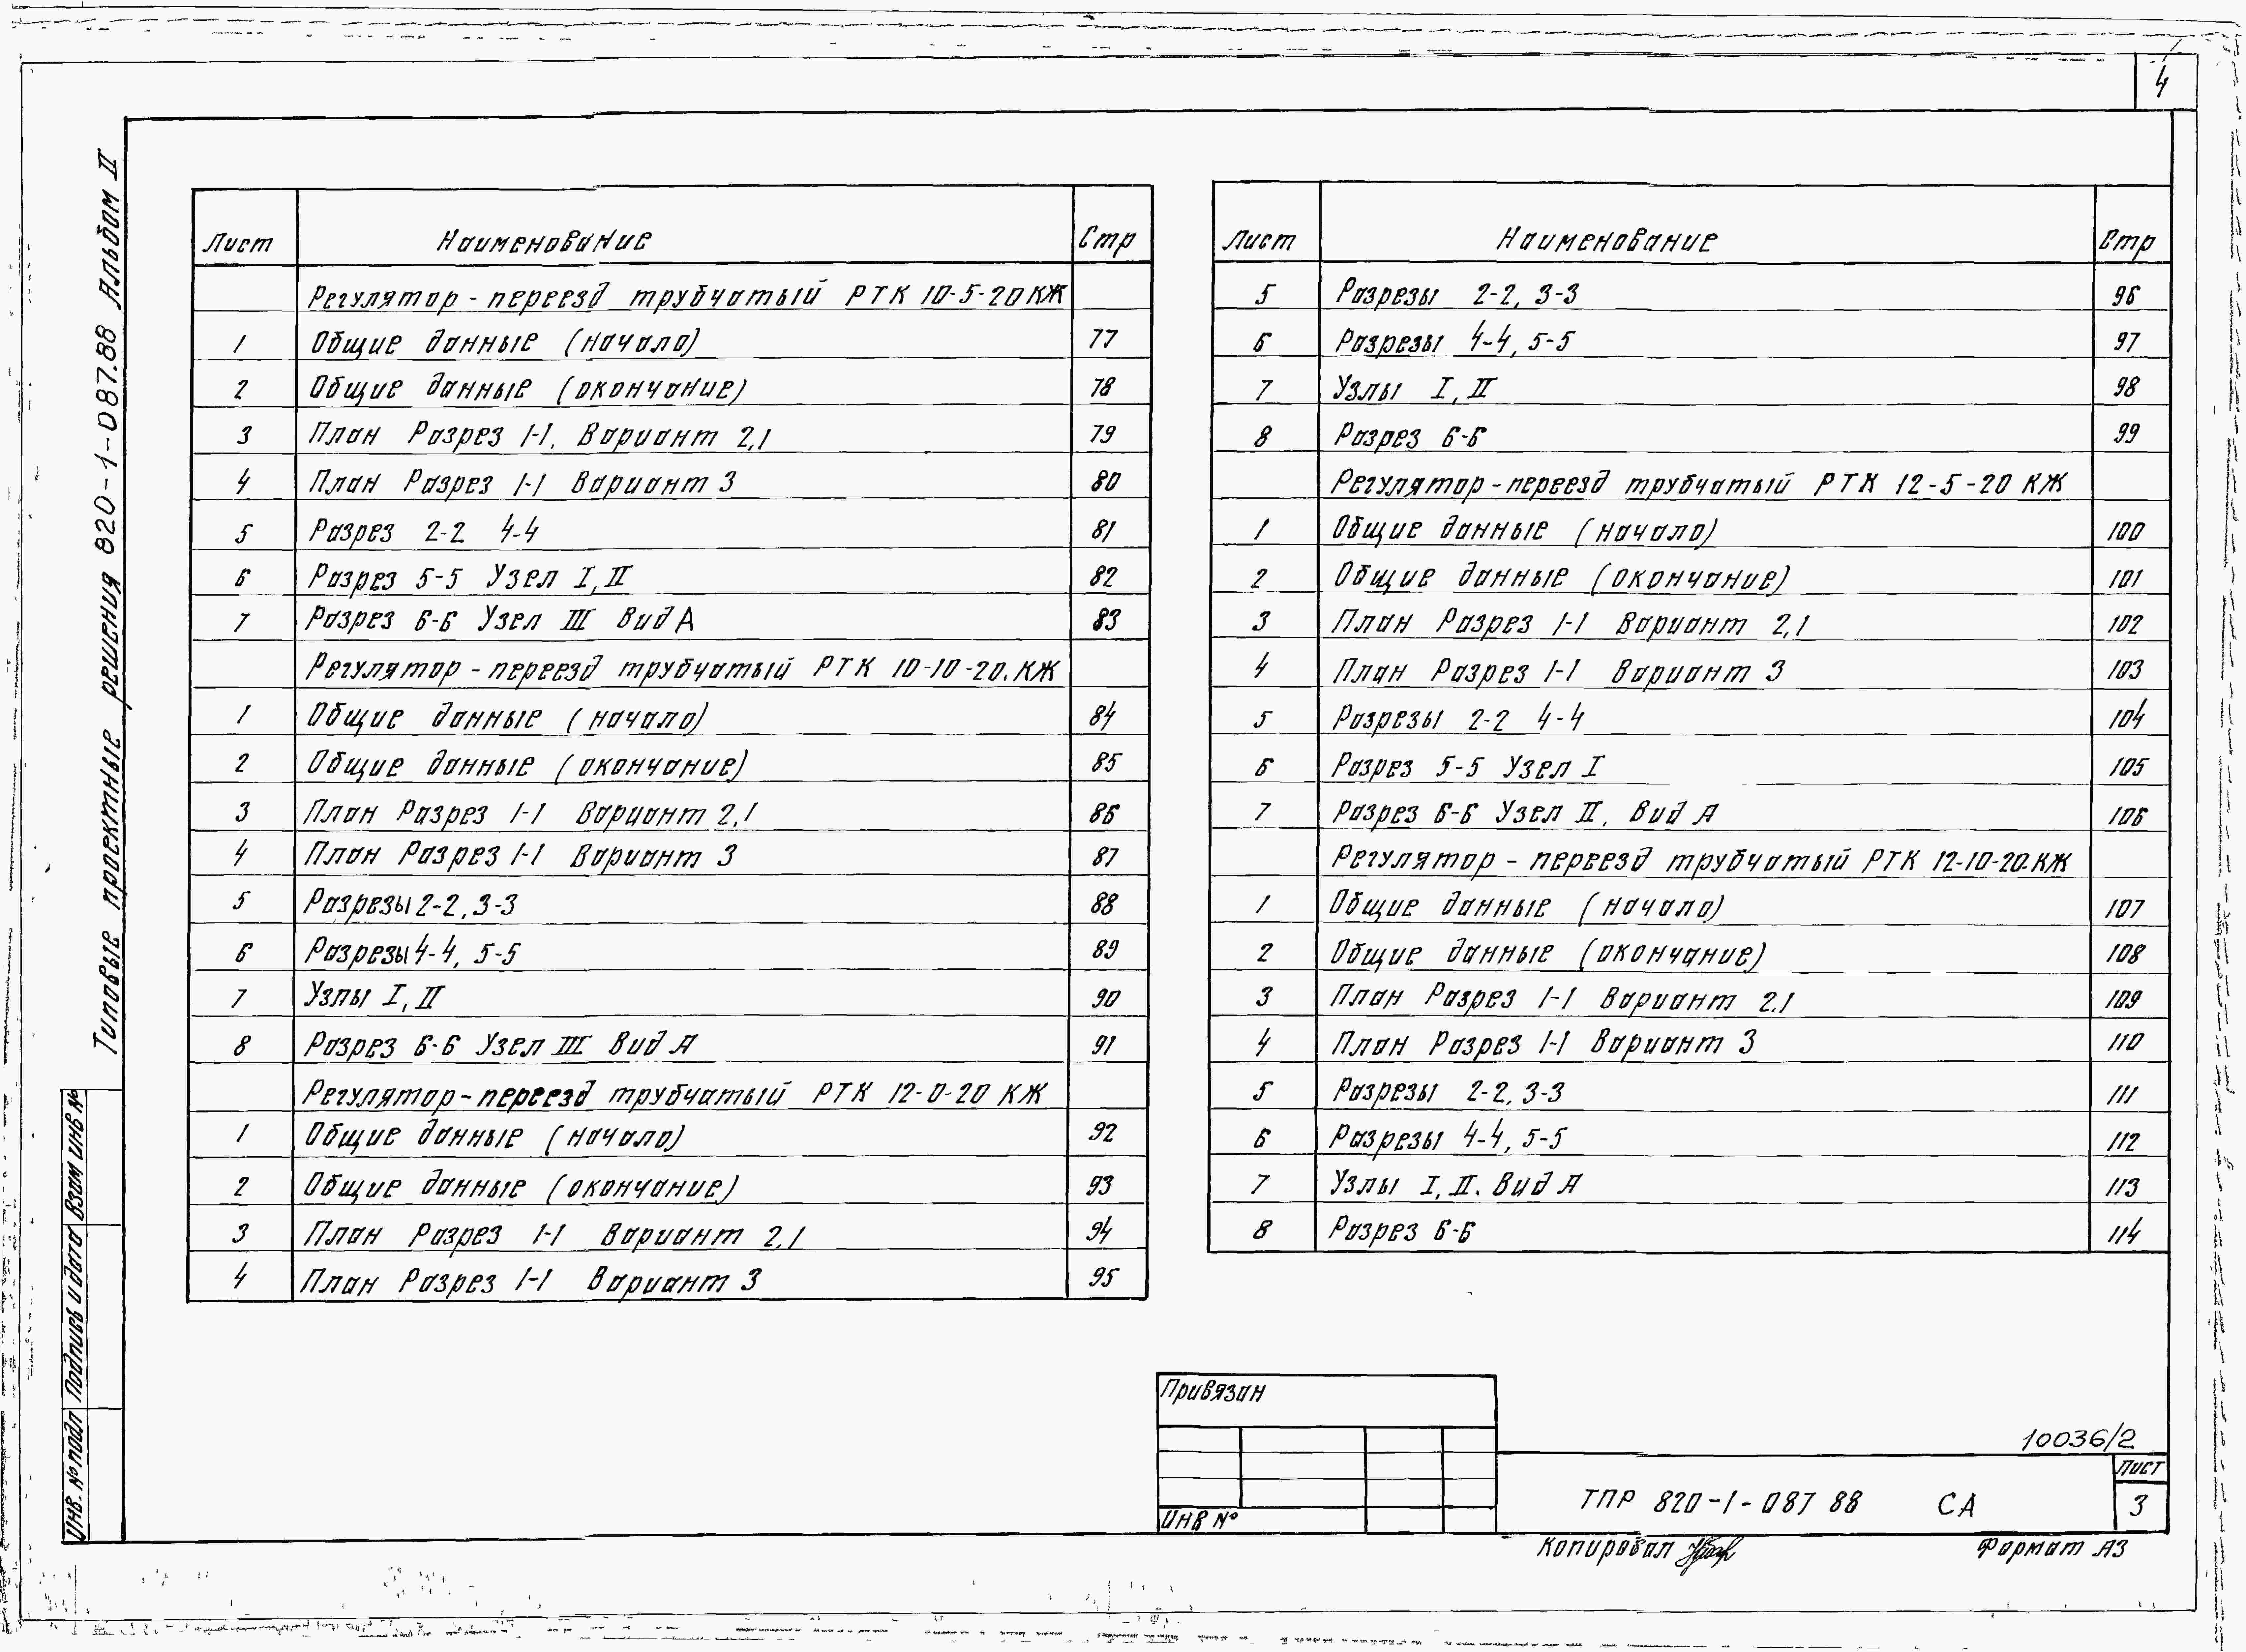 4
Типовые проектные решения 820-1-087.88 Альбом II
Лист Наименование Стр
Регулятор-переезд трубчатый РТК 10-5-20КЖ
1 Общие данные (начало) 77
2 Общие данные (окончание) 78
3 План Разрез 1-1. Вариант 2,1 79
4 План Разрез 1-1 Вариант 3 80
5 Разрез 2-2 4-4 81
6 Разрез 5-5 Узел I, II 82
7 Разрез 6-6 Узел III Вид А 83
Регулятор-переезд трубчатый РТК 10-10-20.КЖ
1 Общие данные (начало) 84
2 Общие данные (окончание) 85
3 План Разрез 1-1 Вариант 2,1 86
4 План Разрез 1-1 Вариант 3 87
5 Разрезы 2-2, 3-3 88
6 Разрезы 4-4, 5-5 89
7 Узлы I, II 90
8 Разрез 6-6 Узел III Вид А 91
Регулятор-переезд трубчатый РТК 12-0-20 КЖ
1 Общие данные (начало) 92
2 Общие данные (окончание) 93
3 План Разрез 1-1 Вариант 2,1 94
4 План Разрез 1-1 Вариант 3 95
Лист Наименование Стр
5 Разрезы 2-2, 3-3 96
6 Разрезы 4-4, 5-5 97
7 Узлы I, II 98
8 Разрез 6-6 99
Регулятор-переезд трубчатый РТК 12-5-20 КЖ
1 Общие данные (начало) 100
2 Общие данные (окончание) 101
3 План Разрез 1-1 Вариант 2,1 102
4 План Разрез 1-1 Вариант 3 103
5 Разрезы 2-2 4-4 104
6 Разрез 5-5 Узел I 105
7 Разрез 6-6 Узел II. Вид А 106
Регулятор-переезд трубчатый РТК 12-10-20.КЖ
1 Общие данные (начало) 107
2 Общие данные (окончание) 108
3 План Разрез 1-1 Вариант 2,1 109
4 План Разрез 1-1 Вариант 3 110
5 Разрезы 2-2, 3-3 111
6 Разрезы 4-4, 5-5 112
7 Узлы I, II. Вид А 113
8 Разрез 6-6 114
Инв. № подл Подпись и дата Взам инв №
Привязан
Инв №
10036/2
ТПР 820-1-087 88 СА
Лист
3
Копировал
Формат А3